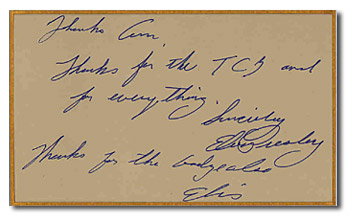 Thanks Ann.
Thanks for the TCB and
for everything.
Sincerley
Elvis Presley
Thanks for the badge also
Elvis